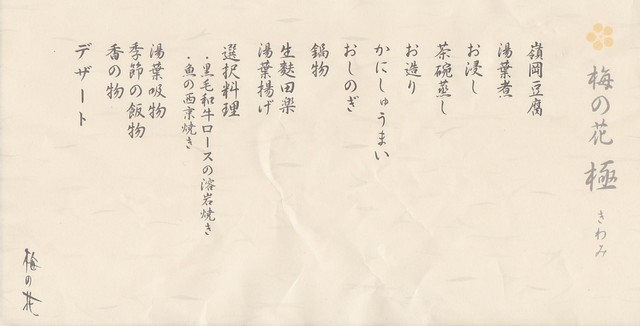 梅の花 極 きわみ
嶺岡豆腐
湯葉煮
お浸し
茶碗蒸し
お造り
かにしゅうまい
おしのぎ
鍋物
生麩田楽
湯葉揚げ
選択料理
・黒毛和牛ロースの溶岩焼き
・魚の西京焼き
湯葉吸物
季節の飯物
香の物
デザート
梅の花